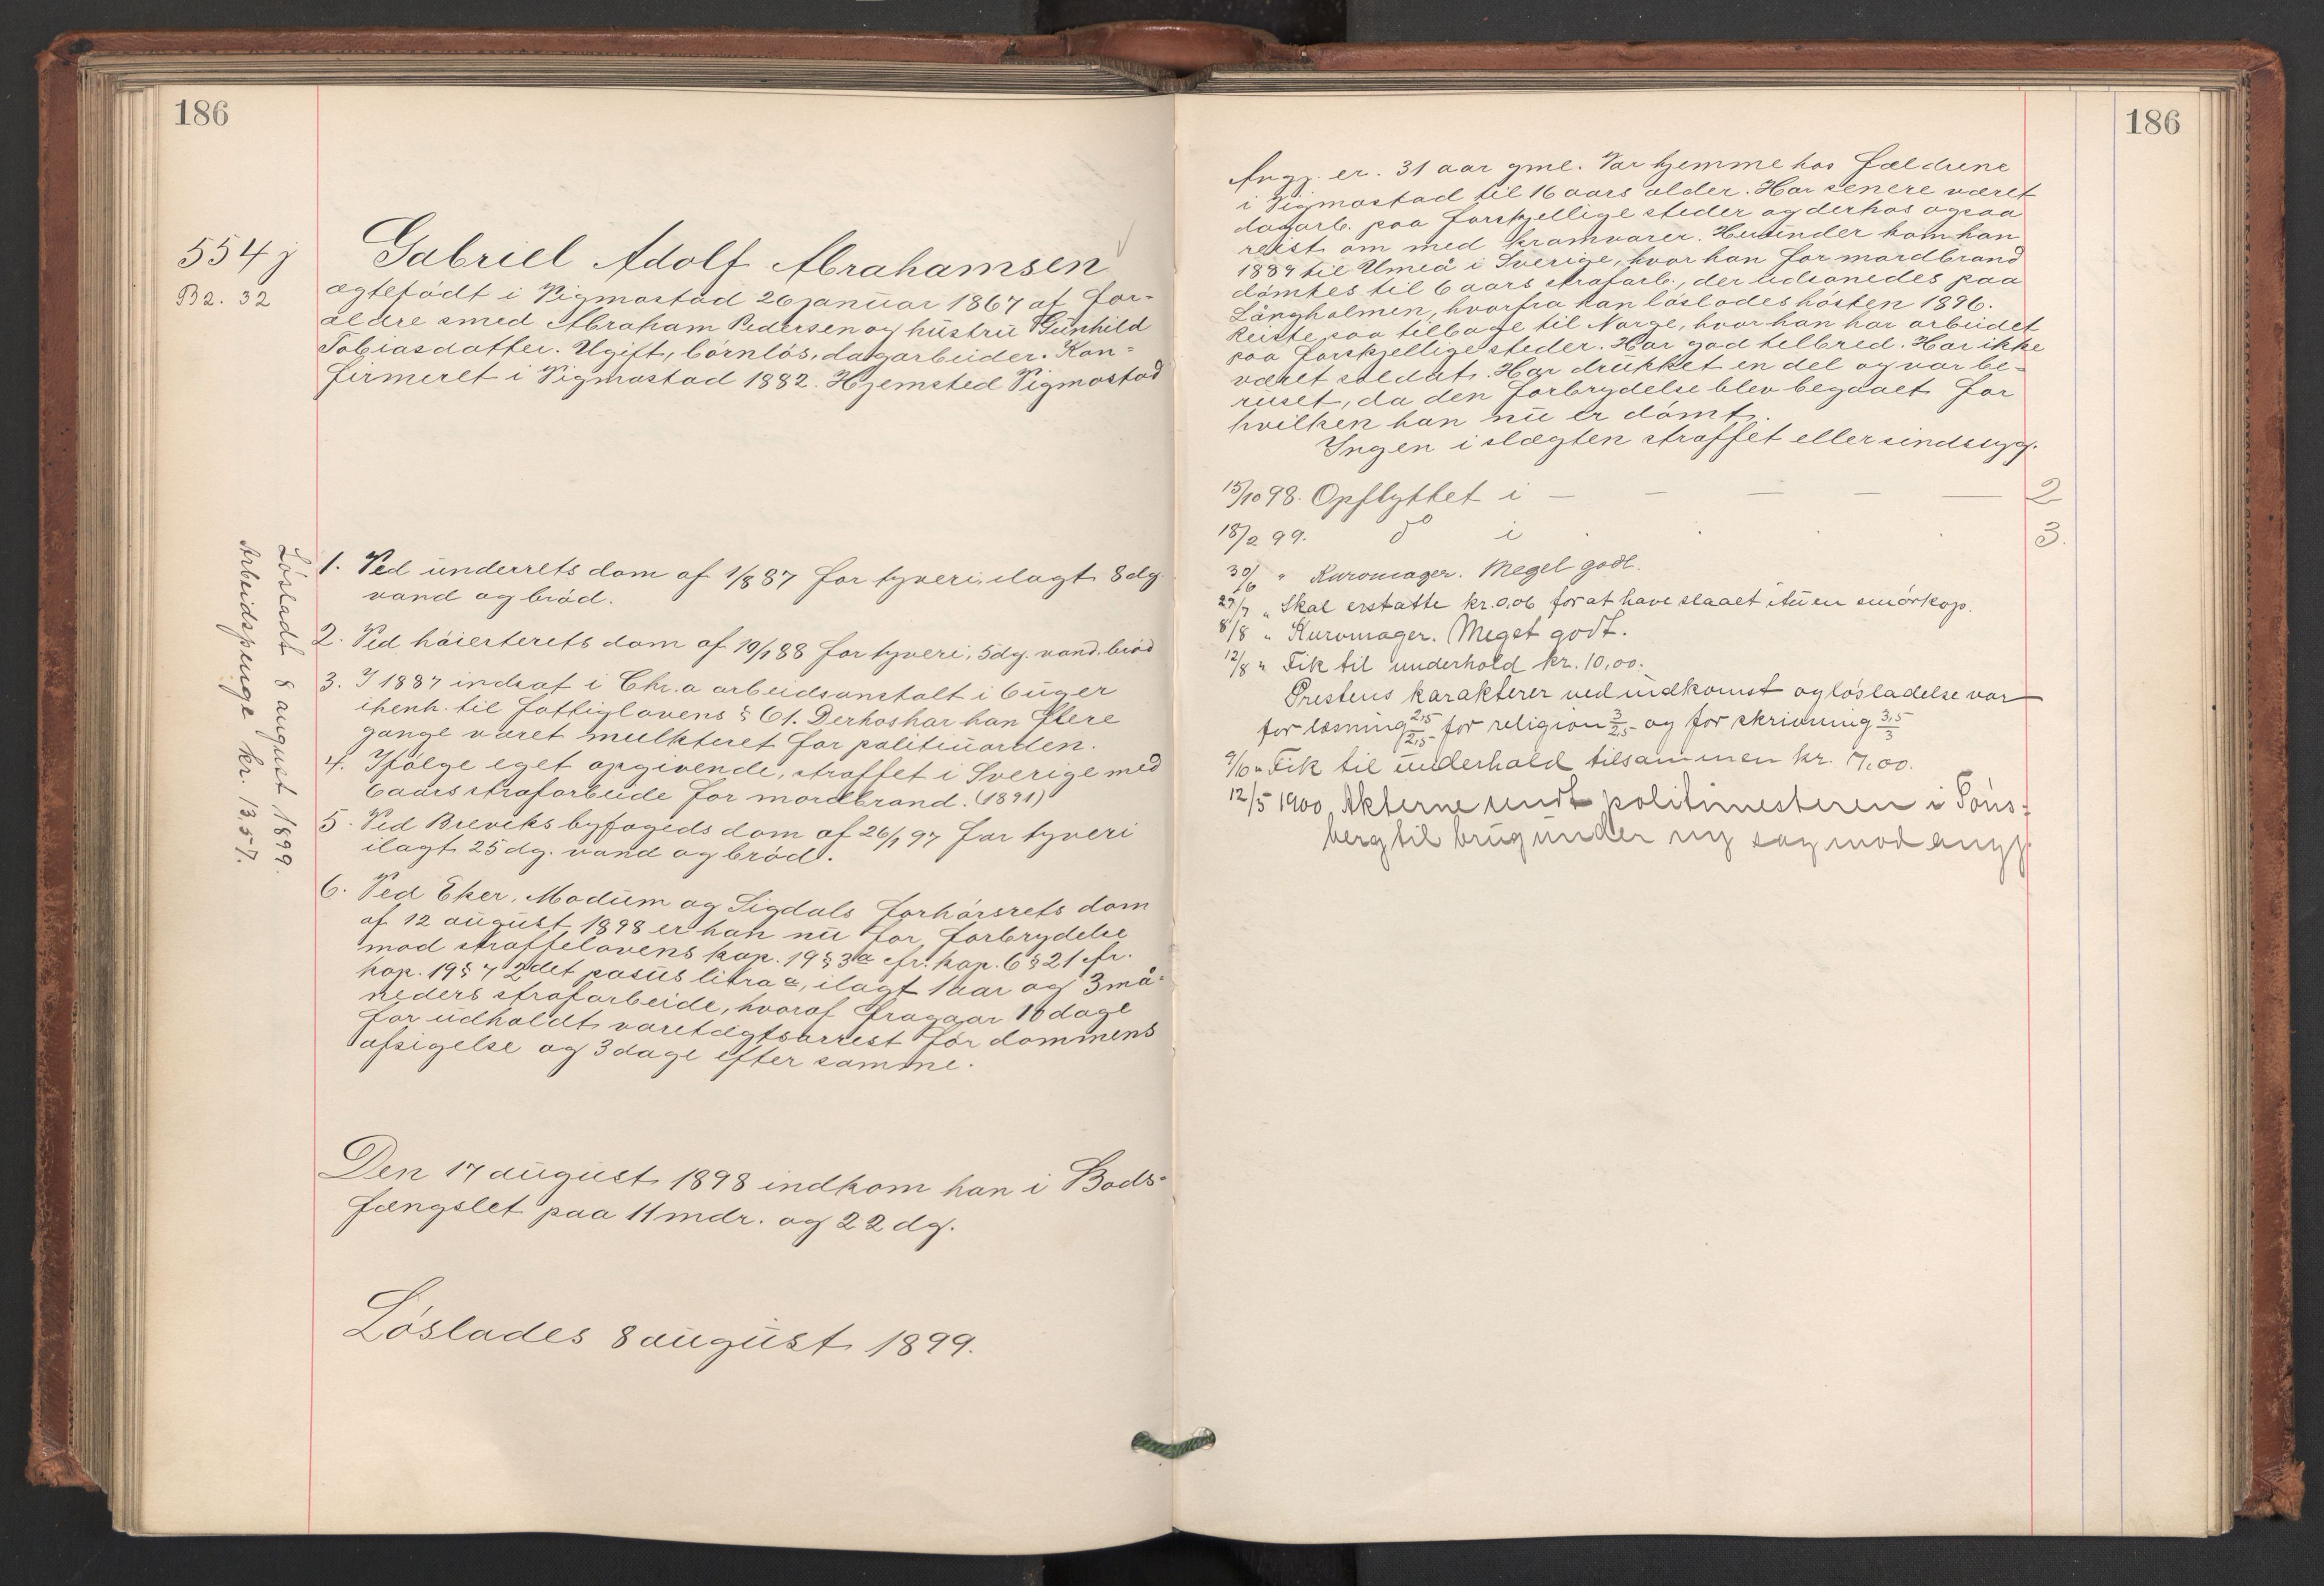 186
554 j
B2. 32
Gabriel Adolf Abrahamsen
ægtefødt i Vigmostad 26 januar 1867 af for-
ældre smed Abraham Pedersen og hustru Gunhild
Tobiasdatter. Ugift, børnløs, dagarbeider. Kon=
firmeret i Vigmostad 1882. Hjemsted Vigmostad
Løsladt 8 august 1899.
Arbeidspenge kr. 13,57.
1. Ved underrets dom af 1/8 87 for tyveri, ilagt 8 dg.
vand og brød.
2. Ved høiesterets dom af 19/1 88 for tyveri, 5 dg. vand. brød
3. I 1887 indsat i Chr.a arbeidsanstalt i 6 uger
ihenh. til fattiglovens § 61. Derhos har han flere
gange været mulkteret for politiuorden.
4. Ifølge eget opgivende, straffet i Sverige med
6 aars strafarbeide for mordbrand. (1891)
5. Ved Breviks byfogeds dom af 26/1 97 for tyveri
ilagt 25 dg. vand og brød.
6. Ved Eker, Modum og Sigdals forhørsrets dom
af 12 august 1898 er han nu for forbrydelse
mod straffelovens kap. 19 § 3 a cfr. kap. 6 § 21 cfr.
kap. 19 § 7 2det pasus litra a, ilagt 1 aar og 3 må=
neders strafarbeide, hvoraf fragaar 10 dage
for udholdt varetægtsarrest før dommens
afsigelse og 3 dage efter samme.
Den 17 august 1898 indkom han i Bods=
fængslet paa 11 mdr. og 22 dg.
Løslades 8 august 1899.
186
Angj. er. 31 aar gml. Var hjemme hos fældrene
i Vigmostad til 16 aars alder. Har senere været
dagarb. paa forskjellige steder og derhos ogsaa
reist om med kramvarer. Herunder kom han
1889 til Umeå i Sverige, hvor han for mordbrand
dømtes til 6 aars strafarb., der udsonedes paa
Långholmen, hvorfra han løslodes høsten 1896.
Reiste saa tilbage til Norge, hvor han har arbeidet
paa forskjellige steder. Har god helbred. Har ikke
været soldat. Har drukket en del og var be-
ruset, da den forbrydelse blev begaaet for
hvilken han nu er dømt.
Ingen i slægten straffet eller sindsyg.
15/10 98. Opflyttet i — — — — — 2
18/2 99. do i . . . 3.
30/6 " Kurvmager. Meget godt.
27/7 " Skal erstatte kr. 0,06 for at have slaaet itu en smørkop.
8/8 " Kurvmager. Meget godt.
12/8 " Fik til underhold kr. 10,00.
Prestens karakterer ved indkomst og løsladelse var
for læsning 2,5/2,5 for religion 3/2,5 og for skrivning 3,5/3
9/10 " Fik til underhold tilsammen kr. 7,00.
12/5 1900 Akterne sendt politimesteren i Tøns-
berg til brug under ny sag mod angj.